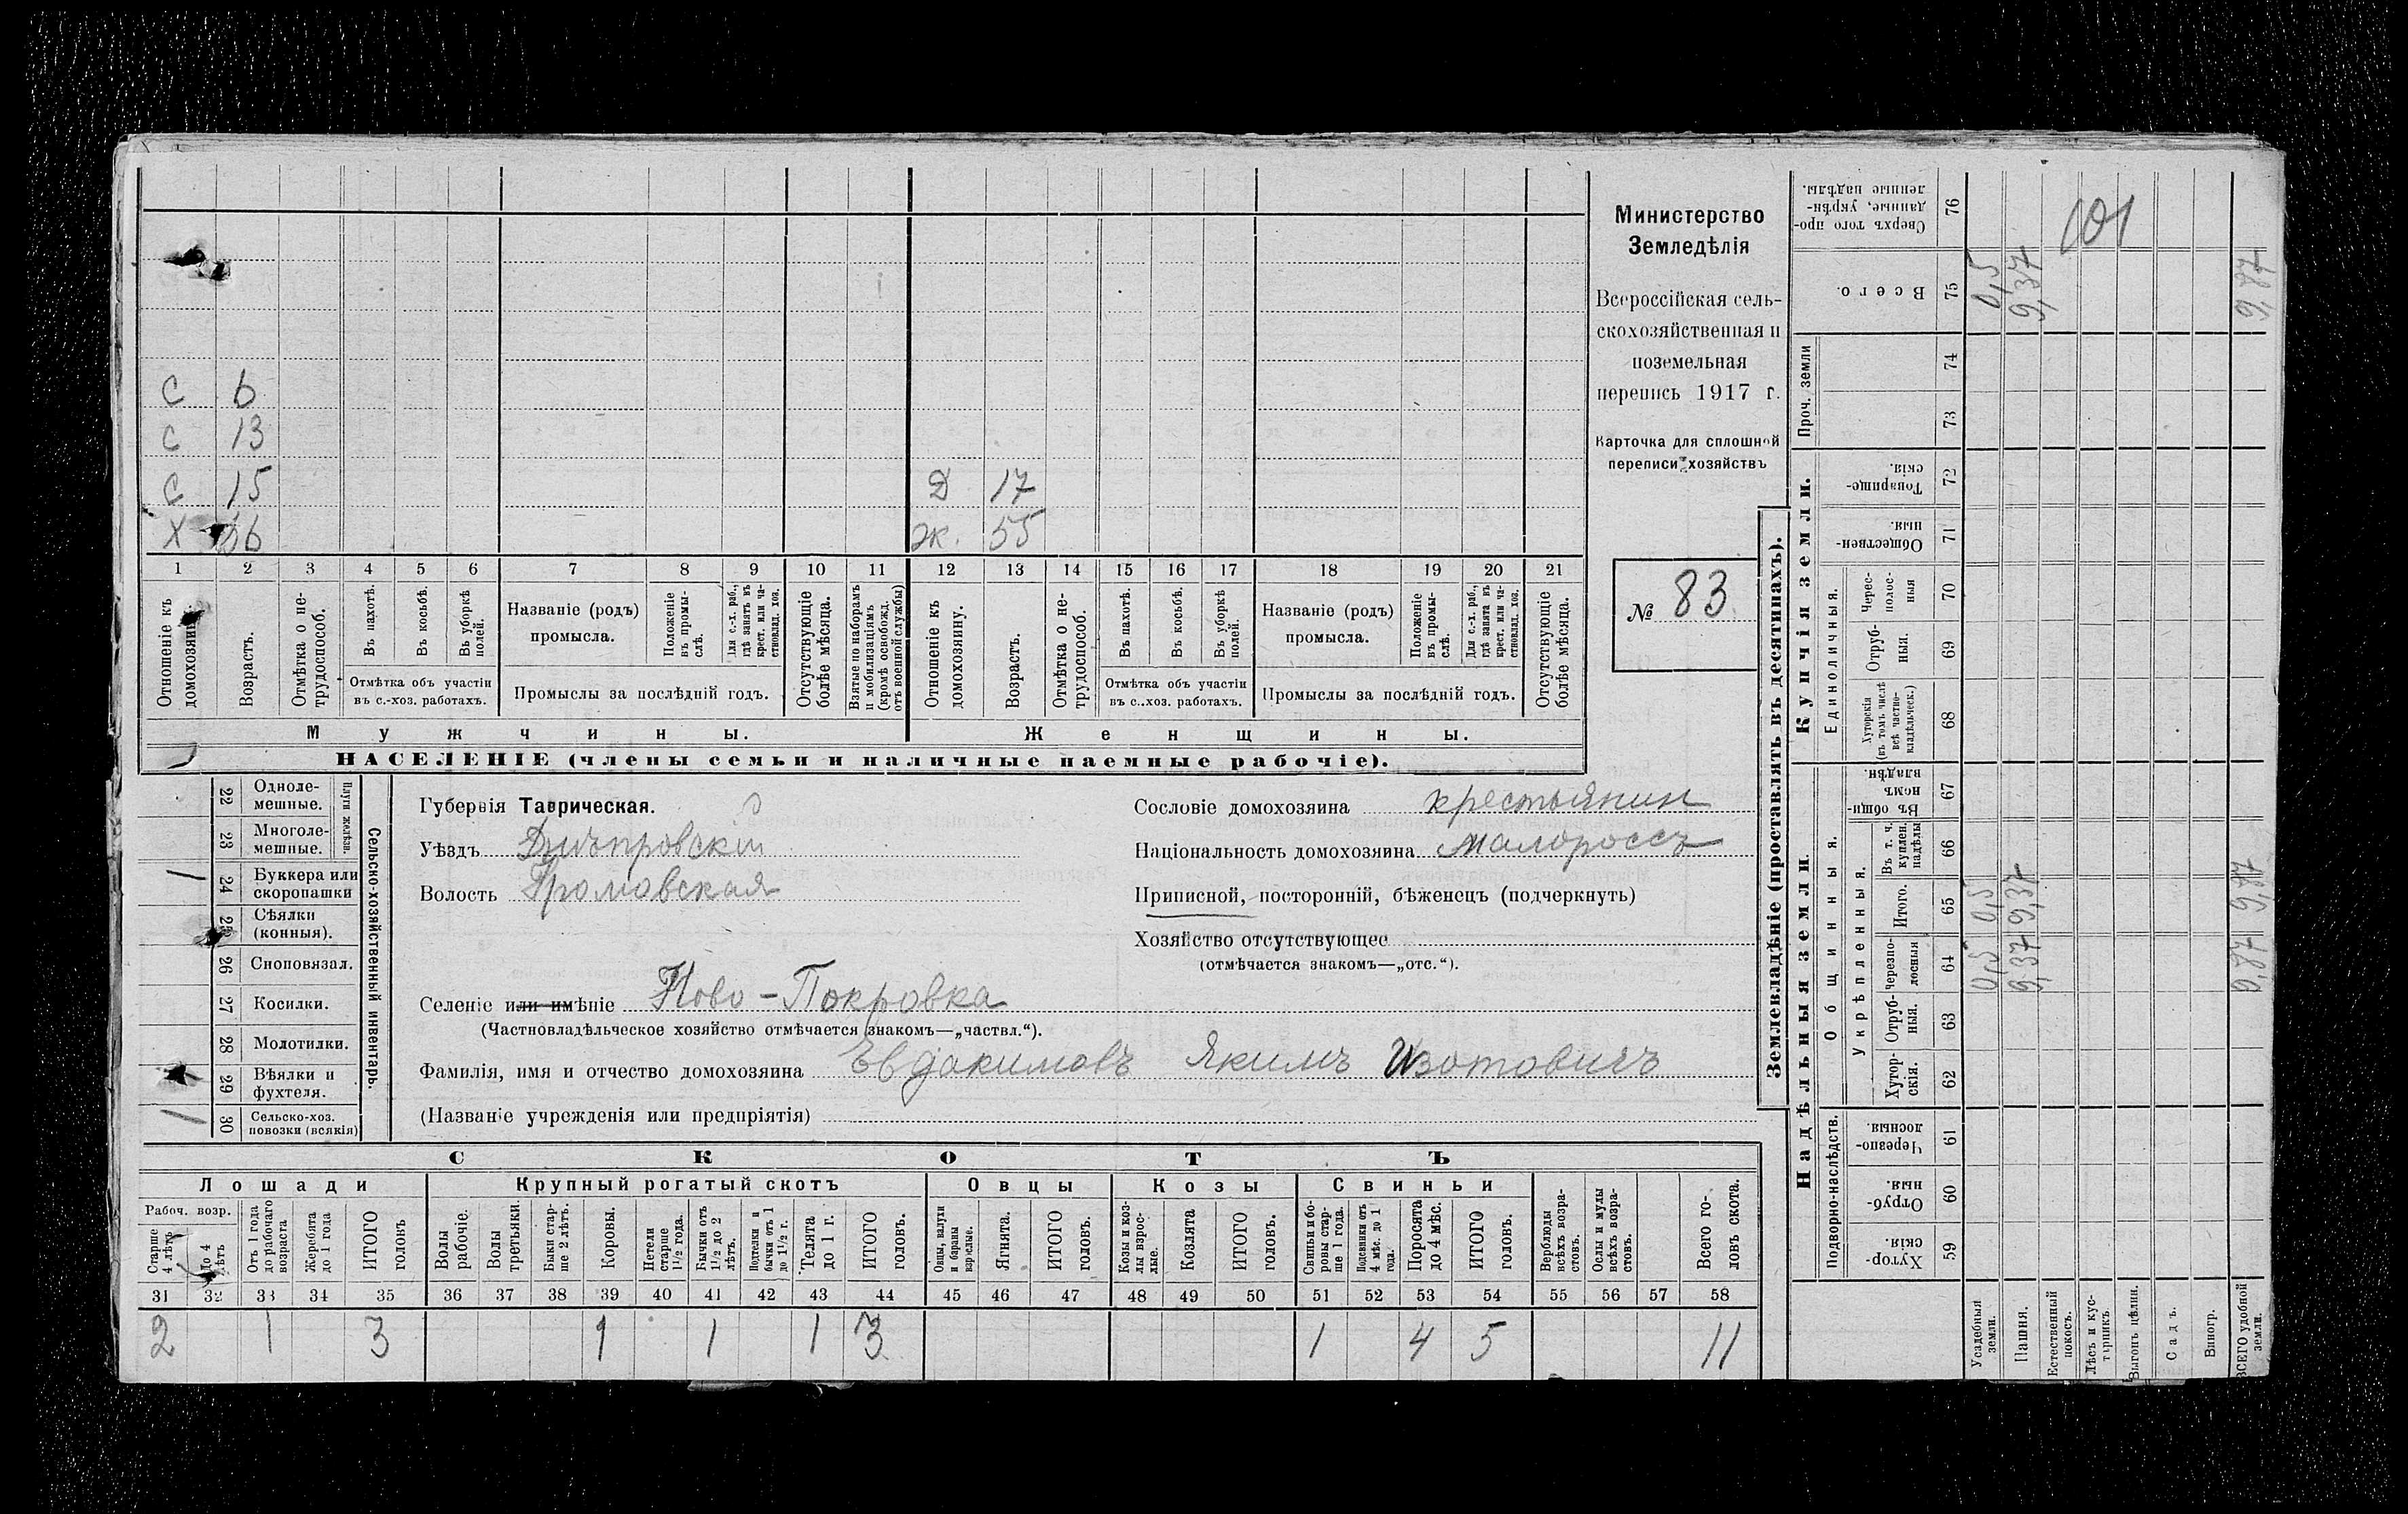 С 6
С 13
С 15 Д 17
Х 56 Ж. 55
1 2 3 4 5 6 7 8 9 10 11 12 13 14 15 16 17 18 19 20 21
Отношеніе къ домохозяину.
Возрастъ.
Отмѣтка о нетрудоспособ.
Въ пахотѣ.
Въ косьбѣ.
Въ уборкѣ полей.
Отмѣтка объ участіи въ с.-хоз. работахъ.
Названіе (родъ) промысла.
Положеніе въ промыслѣ.
Для с.-х. раб., гдѣ занятъ въ крест. или частновлад. хоз.
Промыслы за послѣдній годъ.
Отсутствующіе болѣе мѣсяца.
Взятые по наборамъ и мобилизаціямъ (кромѣ освобожд. отъ военной службы)
Отношеніе къ домохозяину.
Возрастъ.
Отмѣтка о нетрудоспособ.
Въ пахотѣ.
Въ косьбѣ.
Въ уборкѣ полей.
Отмѣтка объ участіи въ с.-хоз. работахъ.
Названіе (родъ) промысла.
Положеніе въ промыслѣ.
Для с.-х. раб., гдѣ занята въ крест. или частновлад. хоз.
Промыслы за послѣдній годъ.
Отсутствующіе болѣе мѣсяца.
Мужчины. Женщины.
НАСЕЛЕНІЕ (члены семьи и наличные наемные рабочіе).
Министерство
Земледѣлія
Всероссійская сель-
скохозяйственная и
поземельная
перепись 1917 г.
Карточка для сплошной
переписи хозяйствъ
№ 83
Сельско-хозяйственный инвентарь.
Плуги желѣзн.
22 Одноле-мешные.
23 Многоле-мешные.
1 24 Буккера или скоропашки
25 Сѣялки (конныя).
26 Сноповязал.
27 Косилки.
28 Молотилки.
29 Вѣялки и фухтеля.
1 30 Сельско-хоз. повозки (всякія)
Губернія Таврическая.
Уѣздъ Днѣпровскій
Волость Громовская
Селеніе или имѣніе Ново-Покровка
(Частновладѣльческое хозяйство отмѣчается знакомъ—„частвл.“).
Фамилія, имя и отчество домохозяина Евдакимовъ Якимъ Изотовичъ
(Названіе учрежденія или предпріятія)
Сословіе домохозяина крестьянин
Національность домохозяина малороссъ
Приписной, посторонній, бѣженецъ (подчеркнуть)
Хозяйство отсутствующее
(отмѣчается знакомъ—„отс.“).
СКОТЪ
Лошади Крупный рогатый скотъ Овцы Козы Свиньи
Рабоч. возр.
Старше 4 лѣтъ
До 4 лѣтъ
Отъ 1 года до рабочаго возраста
Жеребята до 1 года
ИТОГО головъ
Волы рабочіе.
Волы третьяки.
Быки старше 2 лѣтъ.
Коровы.
Нетели старше 1½ года.
Бычки отъ 1½ до 2 лѣтъ.
Подтелки и бычки отъ 1 до 1½ г.
Телята до 1 г.
ИТОГО головъ.
Овцы, валухи и бараны взрослые.
Ягнята.
ИТОГО головъ.
Козы и козлы взрослые.
Козлята
ИТОГО головъ.
Свиньи и боровы старше 1 года.
Подсвинки отъ 4 мѣс. до 1 года.
Поросята до 4 мѣс.
ИТОГО головъ.
Верблюды всѣхъ возрастовъ.
Ослы и мулы всѣхъ возрастовъ.
Всего головъ скота.
31 32 33 34 35 36 37 38 39 40 41 42 43 44 45 46 47 48 49 50 51 52 53 54 55 56 57 58
2 1 3 1 1 1 3 1 4 5 11
Землевладѣніе (проставлять въ десятинахъ).
Надѣльныя земли. Купчія земли. Проч. земли
Подворно-наслѣдств. Общинныя. Укрѣпленныя. Единоличныя.
59 Хутор-скія.
60 Отруб-ныя.
61 Черезпо-лосныя.
62 Хутор-скія.
63 Отруб-ныя.
64 Черезпо-лосныя 0,5 9,37 9,87
65 Итого. 0,5 9,37 9,87
66 Въ т. ч. куплен. надѣлы
67 Въ общин-номъ владѣн.
68 Хуторскія (въ томъ числѣ всѣ частно-владѣльческ.)
69 Отруб-ныя.
70 Черес-полос-ныя
71 Обществен-ныя.
72 Товарище-скія.
73
74
75 Всего. 0,5 9,37 9,87
76 Сверхъ того про-данные, укрѣп-ленные надѣлы.
101
Усадебныя земли.
Пашня.
Естественный покосъ.
Лѣсъ и кустарникъ.
Выгонъ цѣлин.
Садъ.
Виногр.
ВСЕГО удобной земли.